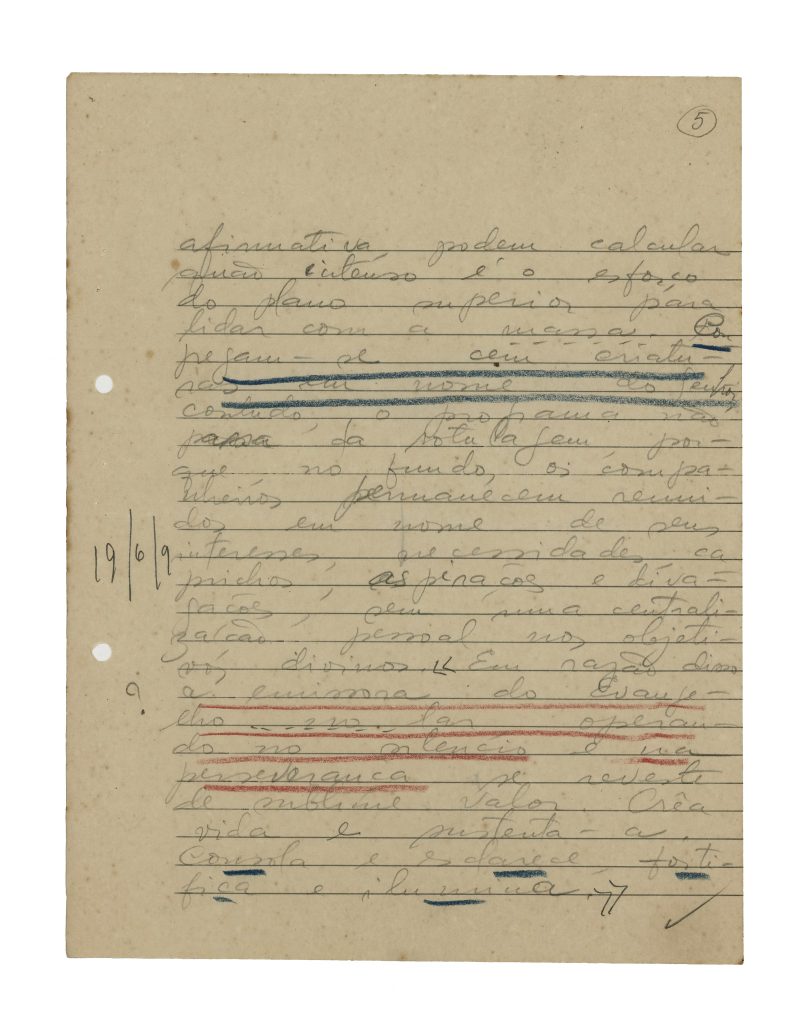 5
afirmativa podem calcular
quão intenso é o esforço
do plano superior para
lidar com a massa. Con
gregam-se cem criatu-
ras em nome do Senhor,
contudo, o programa não
passa da rotulagem por-
que no fundo, os compa-
nheiros permanecem reuni-
dos em nome de seus
interesses, necessidades ca
prichos, aspirações e diva-
gações, sem uma centrali-
zação pessoal nos objeti-
vos divinos. << Em razão disso
a emissora do Evange-
lho no lar operan-
do no silencio e na
perseverança se reveste
de sublime valor. Crêa
vida e sustenta-a.
Consola e esclarece, forti-
fica e ilumina. >>
19/6/9
?